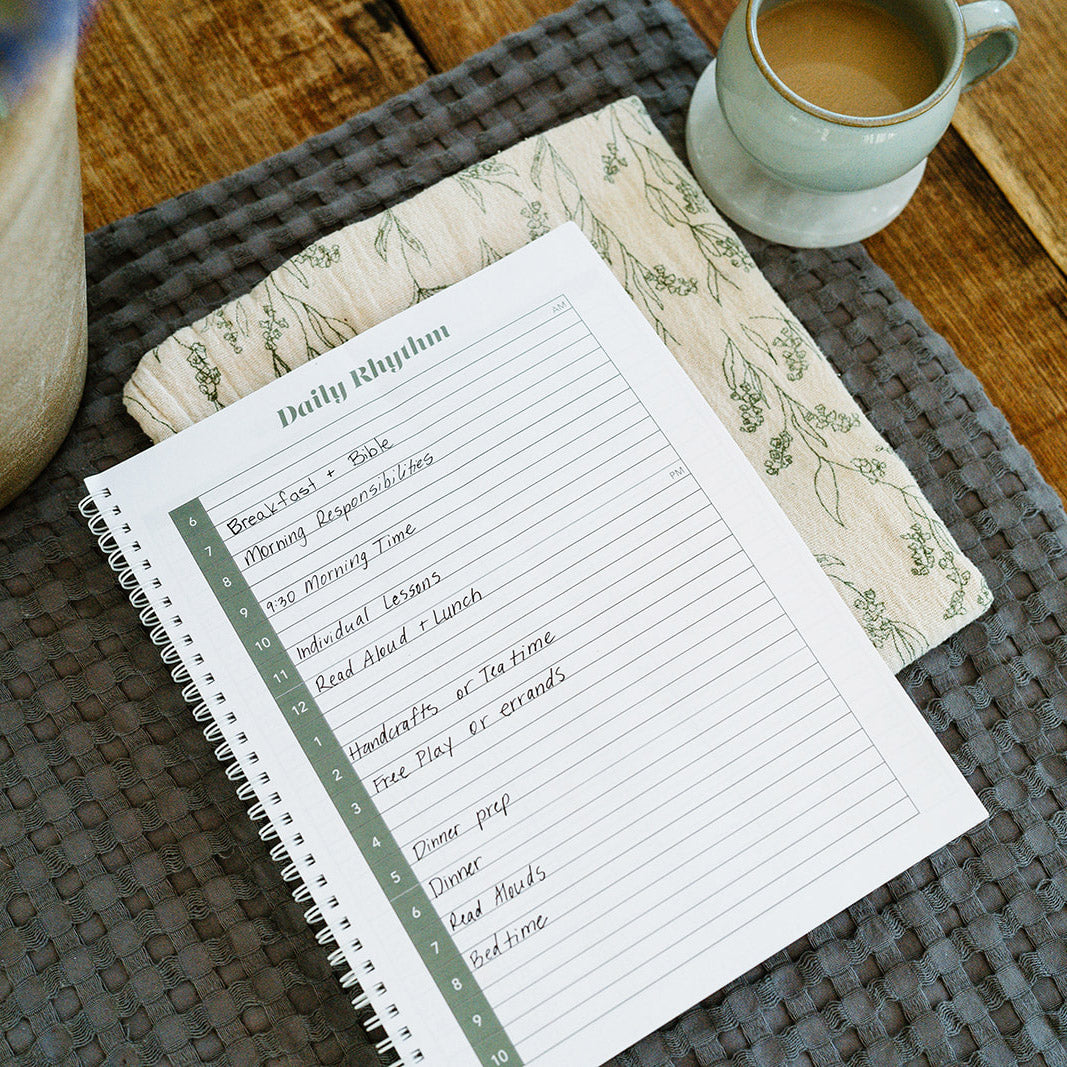 Daily Rhythm
AM
6
7 Breakfast + Bible
8 Morning Responsibilities
9 9:30 Morning Time
10
11 Individual Lessons
PM
12 Read Aloud + Lunch
1
2 Handcrafts or Tea time
3 Free Play or errands
4
5 Dinner prep
6 Dinner
7 Read Alouds
8 Bedtime
9
10